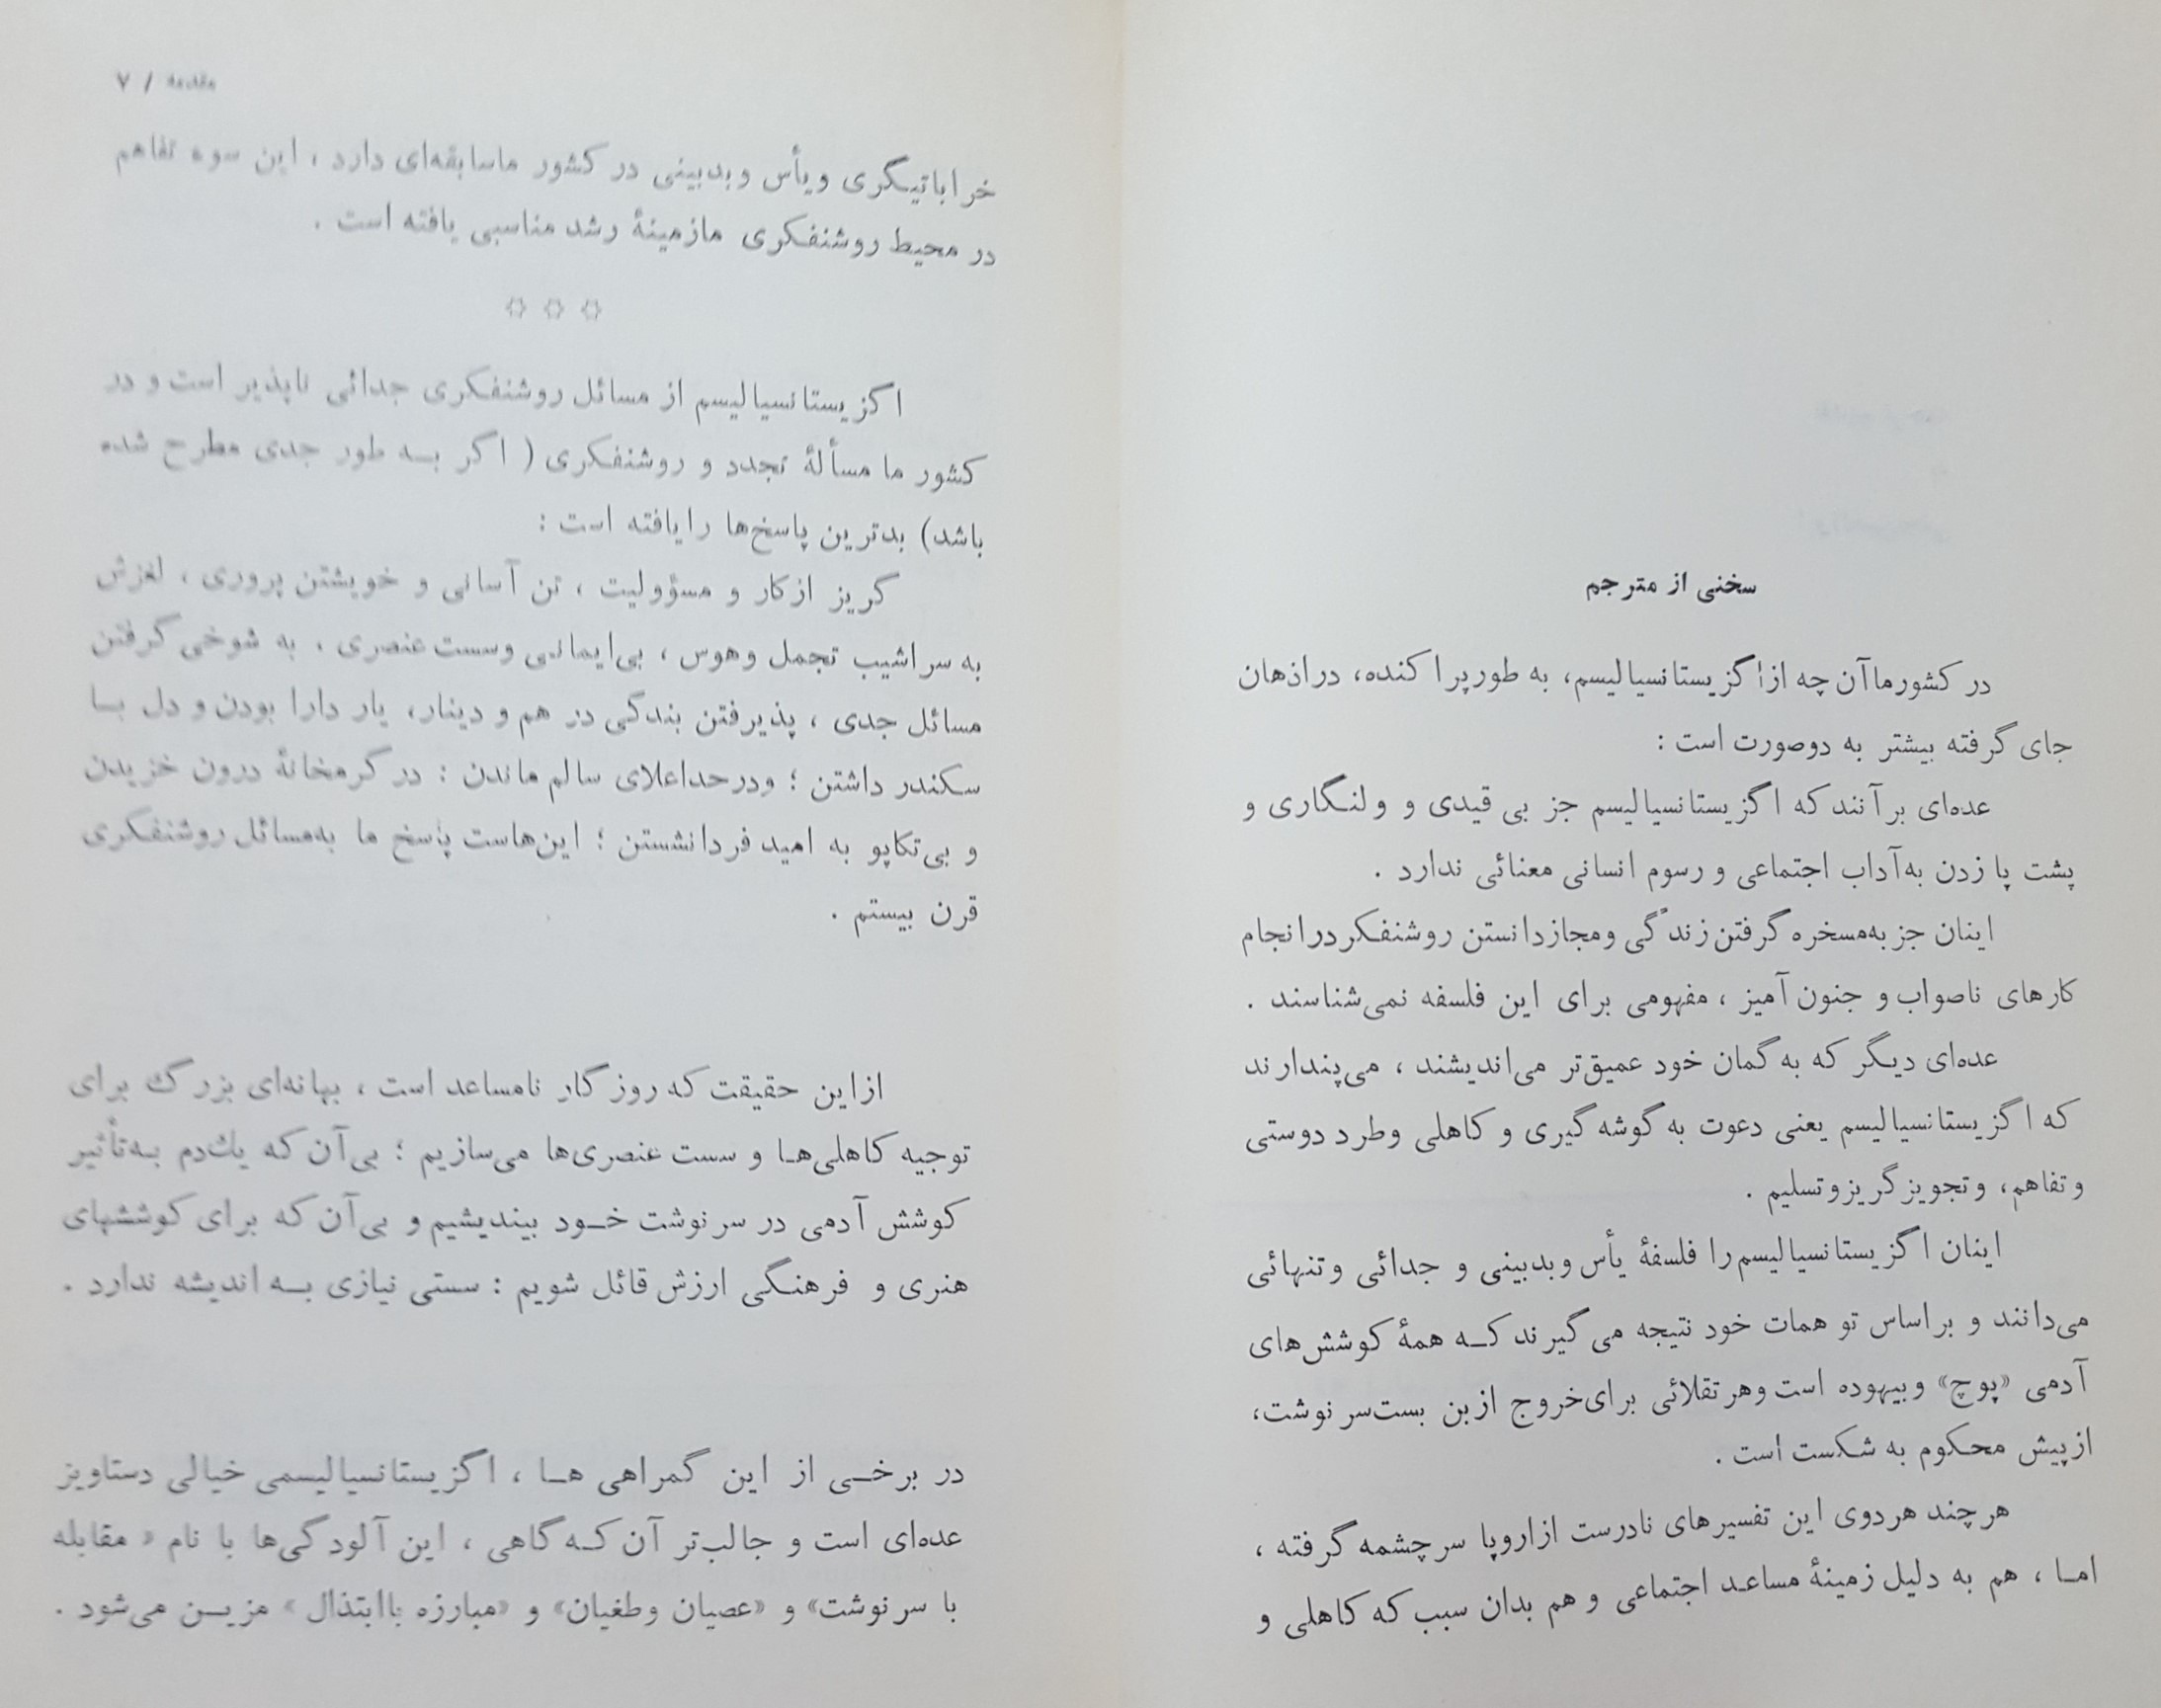 سخنی از مترجم
در کشورما آن چه از اگزیستانسیالیسم، به طور پراکنده، در اذهان
جای گرفته بیشتر به دوصورت است :
عده‌ای برآنند که اگزیستانسیالیسم جز بی قیدی و ولنگاری و
پشت پا زدن به‌آداب اجتماعی و رسوم انسانی معنائی ندارد .
اینان جز به‌مسخره گرفتن زندگی ومجازدانستن روشنفکر درانجام
کارهای ناصواب و جنون آمیز ، مفهومی برای این فلسفه نمی‌شناسند .
عده‌ای دیگر که به گمان خود عمیق‌تر می‌اندیشند ، می‌پندارند
که اگزیستانسیالیسم یعنی دعوت به گوشه گیری و کاهلی وطرد دوستی
وتفاهم، وتجویز گریز وتسلیم .
اینان اگزیستانسیالیسم را فلسفهٔ یأس وبدبینی و جدائی وتنهائی
می‌دانند و براساس توهمات خود نتیجه می‌گیرند کـه همهٔ کوشش‌های
آدمی «پوچ» وبیهوده است وهر تقلائی برای‌خروج ازبن بست‌سرنوشت،
ازپیش محکوم به شکست است .
هرچند هردوی این تفسیرهای نادرست ازاروپا سرچشمه گرفته ،
امـا ، هم به دلیل زمینهٔ مساعد اجتماعی و هم بدان سبب که کاهلی و
مقدمه / ۷
خراباتیگری ویأس وبدبینی در کشور ماسابقه‌ای دارد ، این سوء تفاهم
در محیط روشنفکری مازمینهٔ رشد مناسبی یافته است .
☆ ☆ ☆
اگزیستانسیالیسم از مسائل روشنفکری جدائی ناپذیر است و در
کشور ما مسألهٔ تجدد و روشنفکری ( اگر بـه طور جدی مطرح شده
باشد) بدترین پاسخ‌ها رایافته است :
گریز ازکار و مسؤولیت ، تن آسانی و خویشتن پروری ، لغزش
به سراشیب تجمل وهوس ، بی‌ایمانی وسست عنصری ، به شوخی گرفتن
مسائل جدی ، پذیرفتن بندگی درهم و دینار، یار دارا بودن و دل بـا
سکندر داشتن ؛ ودرحداعلای سالم ماندن : در گرمخانهٔ درون خزیدن
و بی‌تکاپو به امید فردا نشستن ؛ این‌هاست پاسخ ما به‌مسائل روشنفکری
قرن بیستم .
ازاین حقیقت که روزگار نامساعد است ، بهانه‌ای بزرگ برای
توجیه کاهلی‌هـا و سست عنصری‌ها می‌سازیم ؛ بی‌آن که یك‌دم بـه‌تأثیر
کوشش آدمی در سرنوشت خـود بیندیشیم و بی‌آن که برای کوششهای
هنری و فرهنگی ارزش قائل شویم : سستی نیازی بـه اندیشه ندارد .
در برخـی از این گمراهی هـا ، اگزیستانسیالیسمی خیالی دستاویز
عده‌ای است و جالب‌تر آن کـه گاهی ، این آلودگی‌ها با نام « مقابله
با سرنوشت» و «عصیان وطغیان» و «مبارزه باابتذال » مزیـن می‌شود .